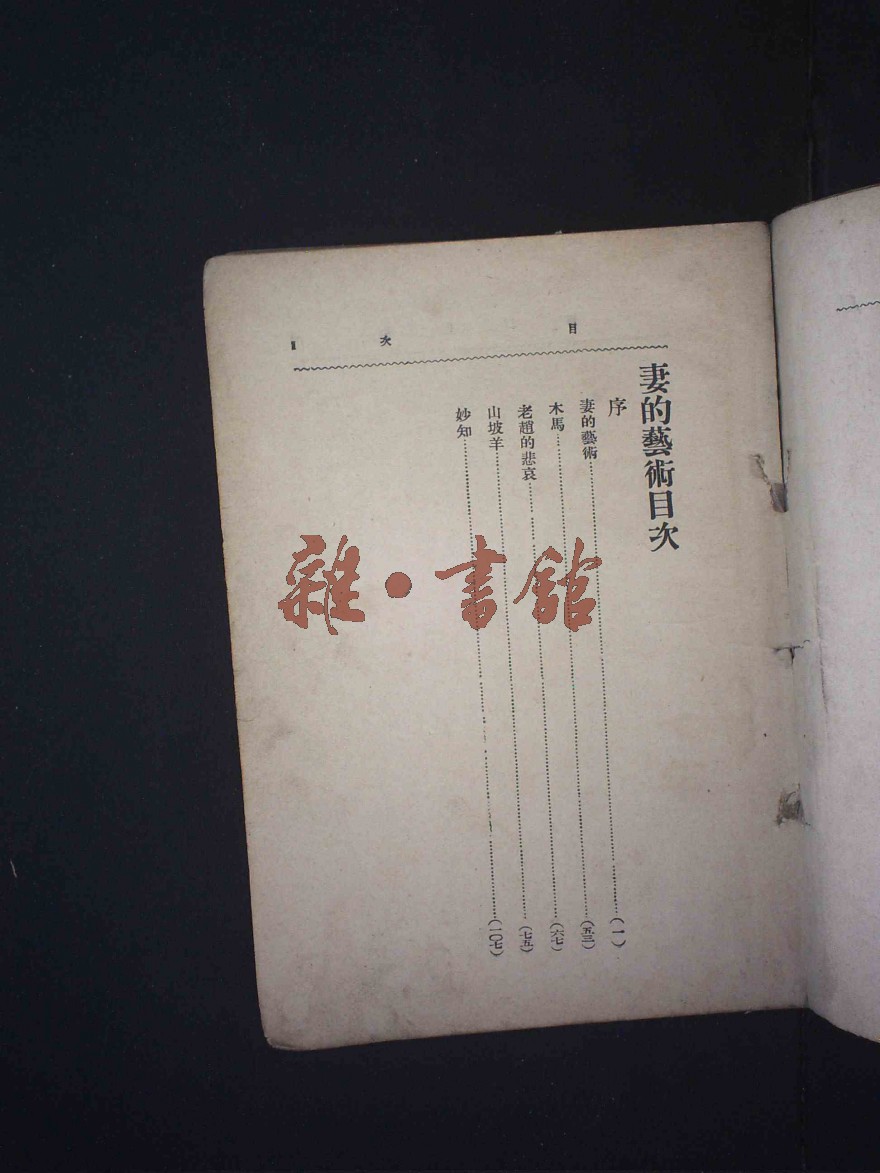 妻的藝術目次
序
妻的藝術……(一)
木馬……(五三)
老趙的悲哀……(六七)
山坡羊……(七五)
妙知……(一〇七)
目次
雜·書館